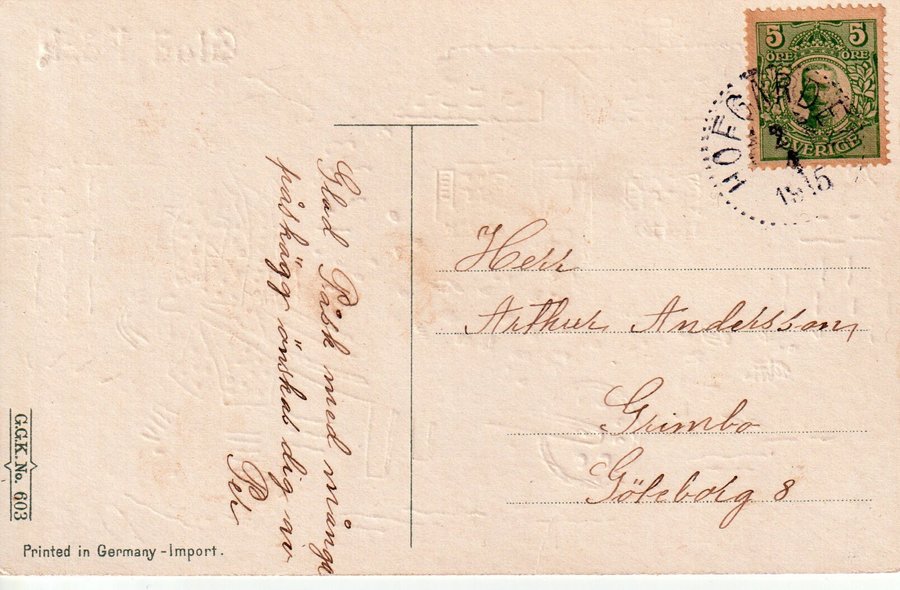 Glad Påsk med många
påskägg önskas dig av
Per
5 5
ÖRE ÖRE
SVERIGE
1915
Herr
Arthur Andersson,
Grimbo
Göteborg 8
G.G.K. No. 603
Printed in Germany - Import.